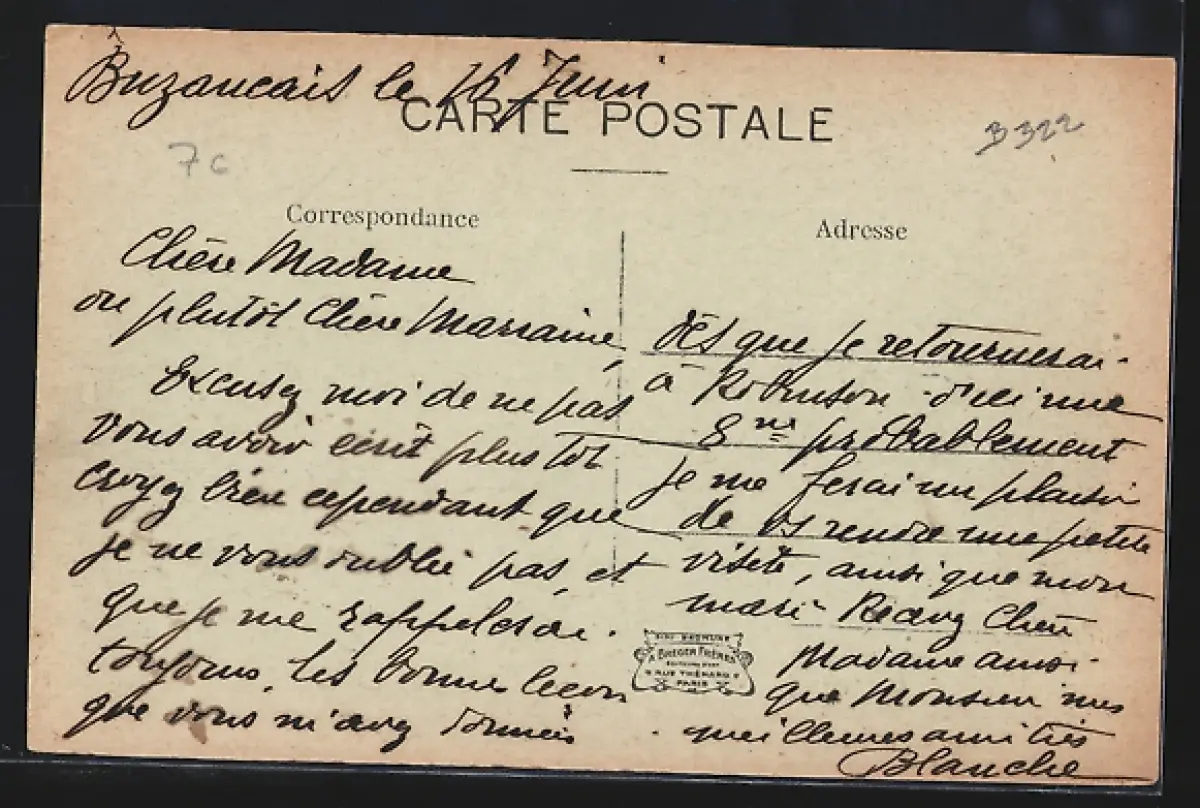 Buzancais le 16 Juin
CARTE POSTALE
B 322
7c
Correspondance
Chère Madame
ou plutôt Chère Marraine,
Excusez moi de ne pas
vous avoir écrit plus tot
croyez bien cependant que
je ne vous oublie pas, et
que je me rappelerai
toujours, les bonnes leçon
que vous m'avez donnés
Adresse
Dès que je retournerai
à Robinson d'ici une
8ne probablement
je me ferai un plaisir
de vs rendre une petite
visite, ainsi que mon
mari Chère
Madame ainsi
que Monsieur mes
meilleures amitiés
Blanche
A. BREGER FRÈRES
9 RUE THÉNARD 9
PARIS